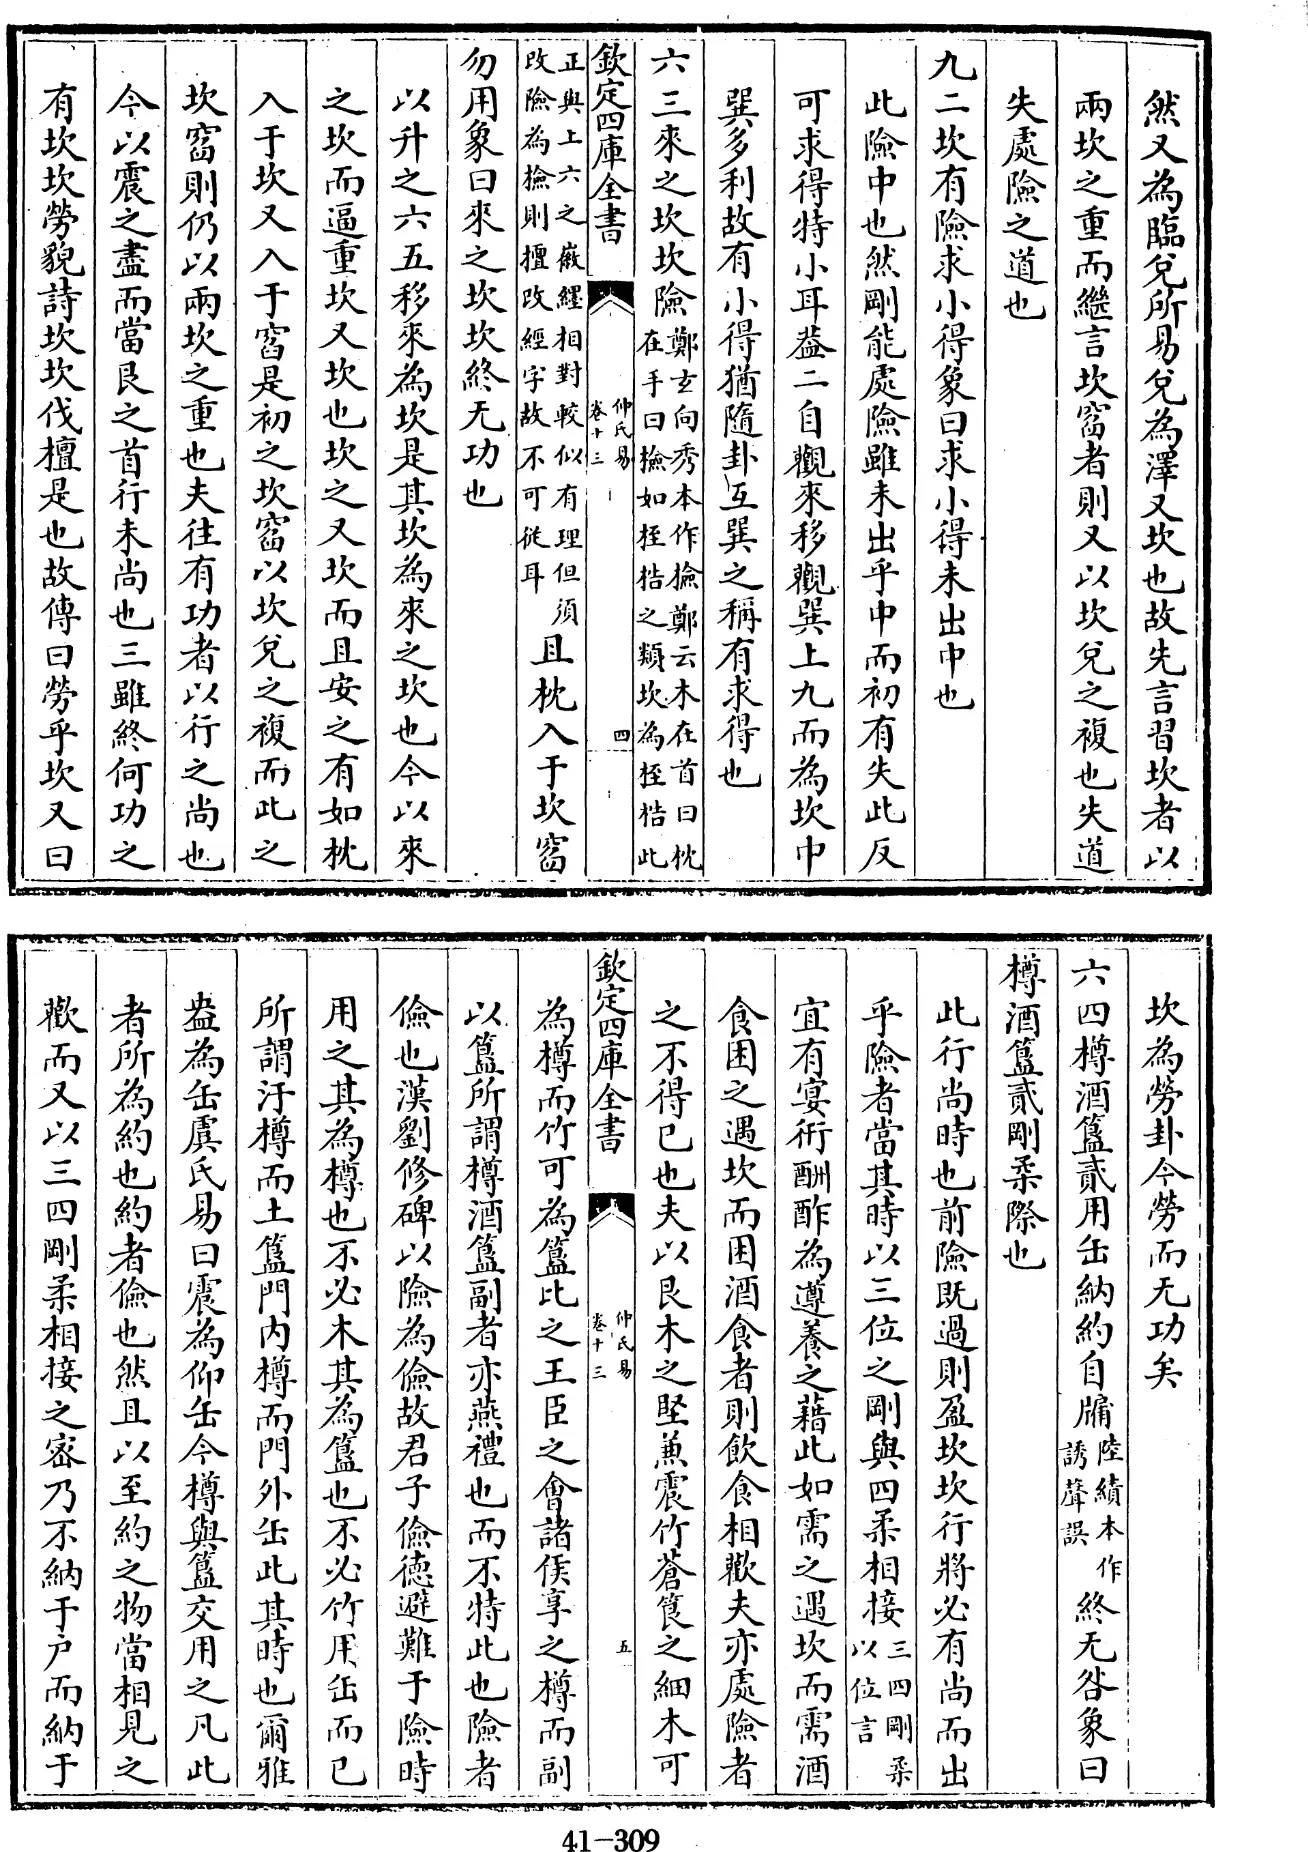 然又為臨兌所易兌為澤又坎也故先言習坎者以
兩坎之重而繼言坎窞者則又以坎兌之複也失道
失處險之道也
九二坎有險求小得象曰求小得未出中也
此險中也然剛能處險雖未出乎中而初有失此反
可求得特小耳葢二自觀來移觀巽上九而為坎中
巽多利故有小得猶隨卦互巽之稱有求得也
六三來之坎坎險鄭玄向秀本作撿鄭云木在首曰枕
在手曰撿如桎梏之類坎為桎梏此
欽定四庫全書
仲氏易
卷十三
四
正與上六之徽纆相對較似有理但須
改險為撿則擅改經字故不可從耳且枕入于坎窞
勿用象曰來之坎坎終无功也
以升之六五移來為坎是其坎為來之坎也今以來
之坎而逼重坎又坎也坎之又坎而且安之有如枕
入于坎又入于窞是初之坎窞以坎兌之複而此之
坎窞則仍以兩坎之重也夫往有功者以行之尚也
今以震之盡而當艮之首行未尚也三雖終何功之
有坎坎勞貌詩坎坎伐檀是也故傳曰勞乎坎又曰
坎為勞卦今勞而无功矣
六四樽酒簋貳用缶納約自牖陸績本作
誘聲誤終无咎象曰
樽酒簋貳剛柔際也
此行尚時也前險既過則盈坎坎行將必有尚而出
乎險者當其時以三位之剛與四柔相接三四剛柔
以位言
宜有宴衎酬酢為遵養之藉此如需之遇坎而需酒
食困之遇坎而困酒食者則飲食相歡夫亦處險者
之不得已也夫以艮木之堅兼震竹蒼筤之細木可
欽定四庫全書
仲氏易
卷十三
五
為樽而竹可為簋比之王臣之會諸侯享之樽而副
以簋所謂樽酒簋副者亦燕禮也而不特此也險者
儉也漢劉修碑以險為儉故君子儉德避難于險時
用之其為樽也不必木其為簋也不必竹用缶而已
所謂汙樽而土簋門內樽而門外缶此其時也爾雅
盎為缶虞氏易曰震為仰缶今樽與簋交用之凡此
者所為約也約者儉也然且以至約之物當相見之
歡而又以三四剛柔相接之密乃不納于户而納于
41-309